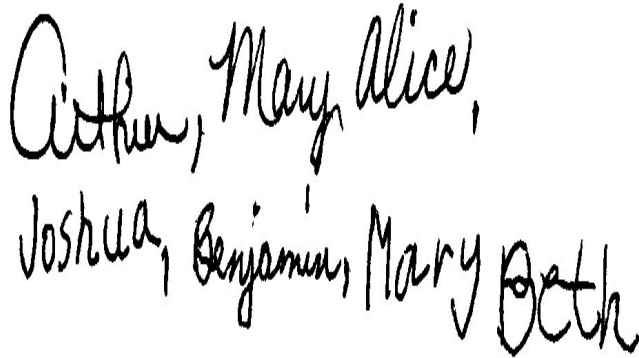 Arthur, Mary Alice,
Joshua, Benjamin, Mary Beth